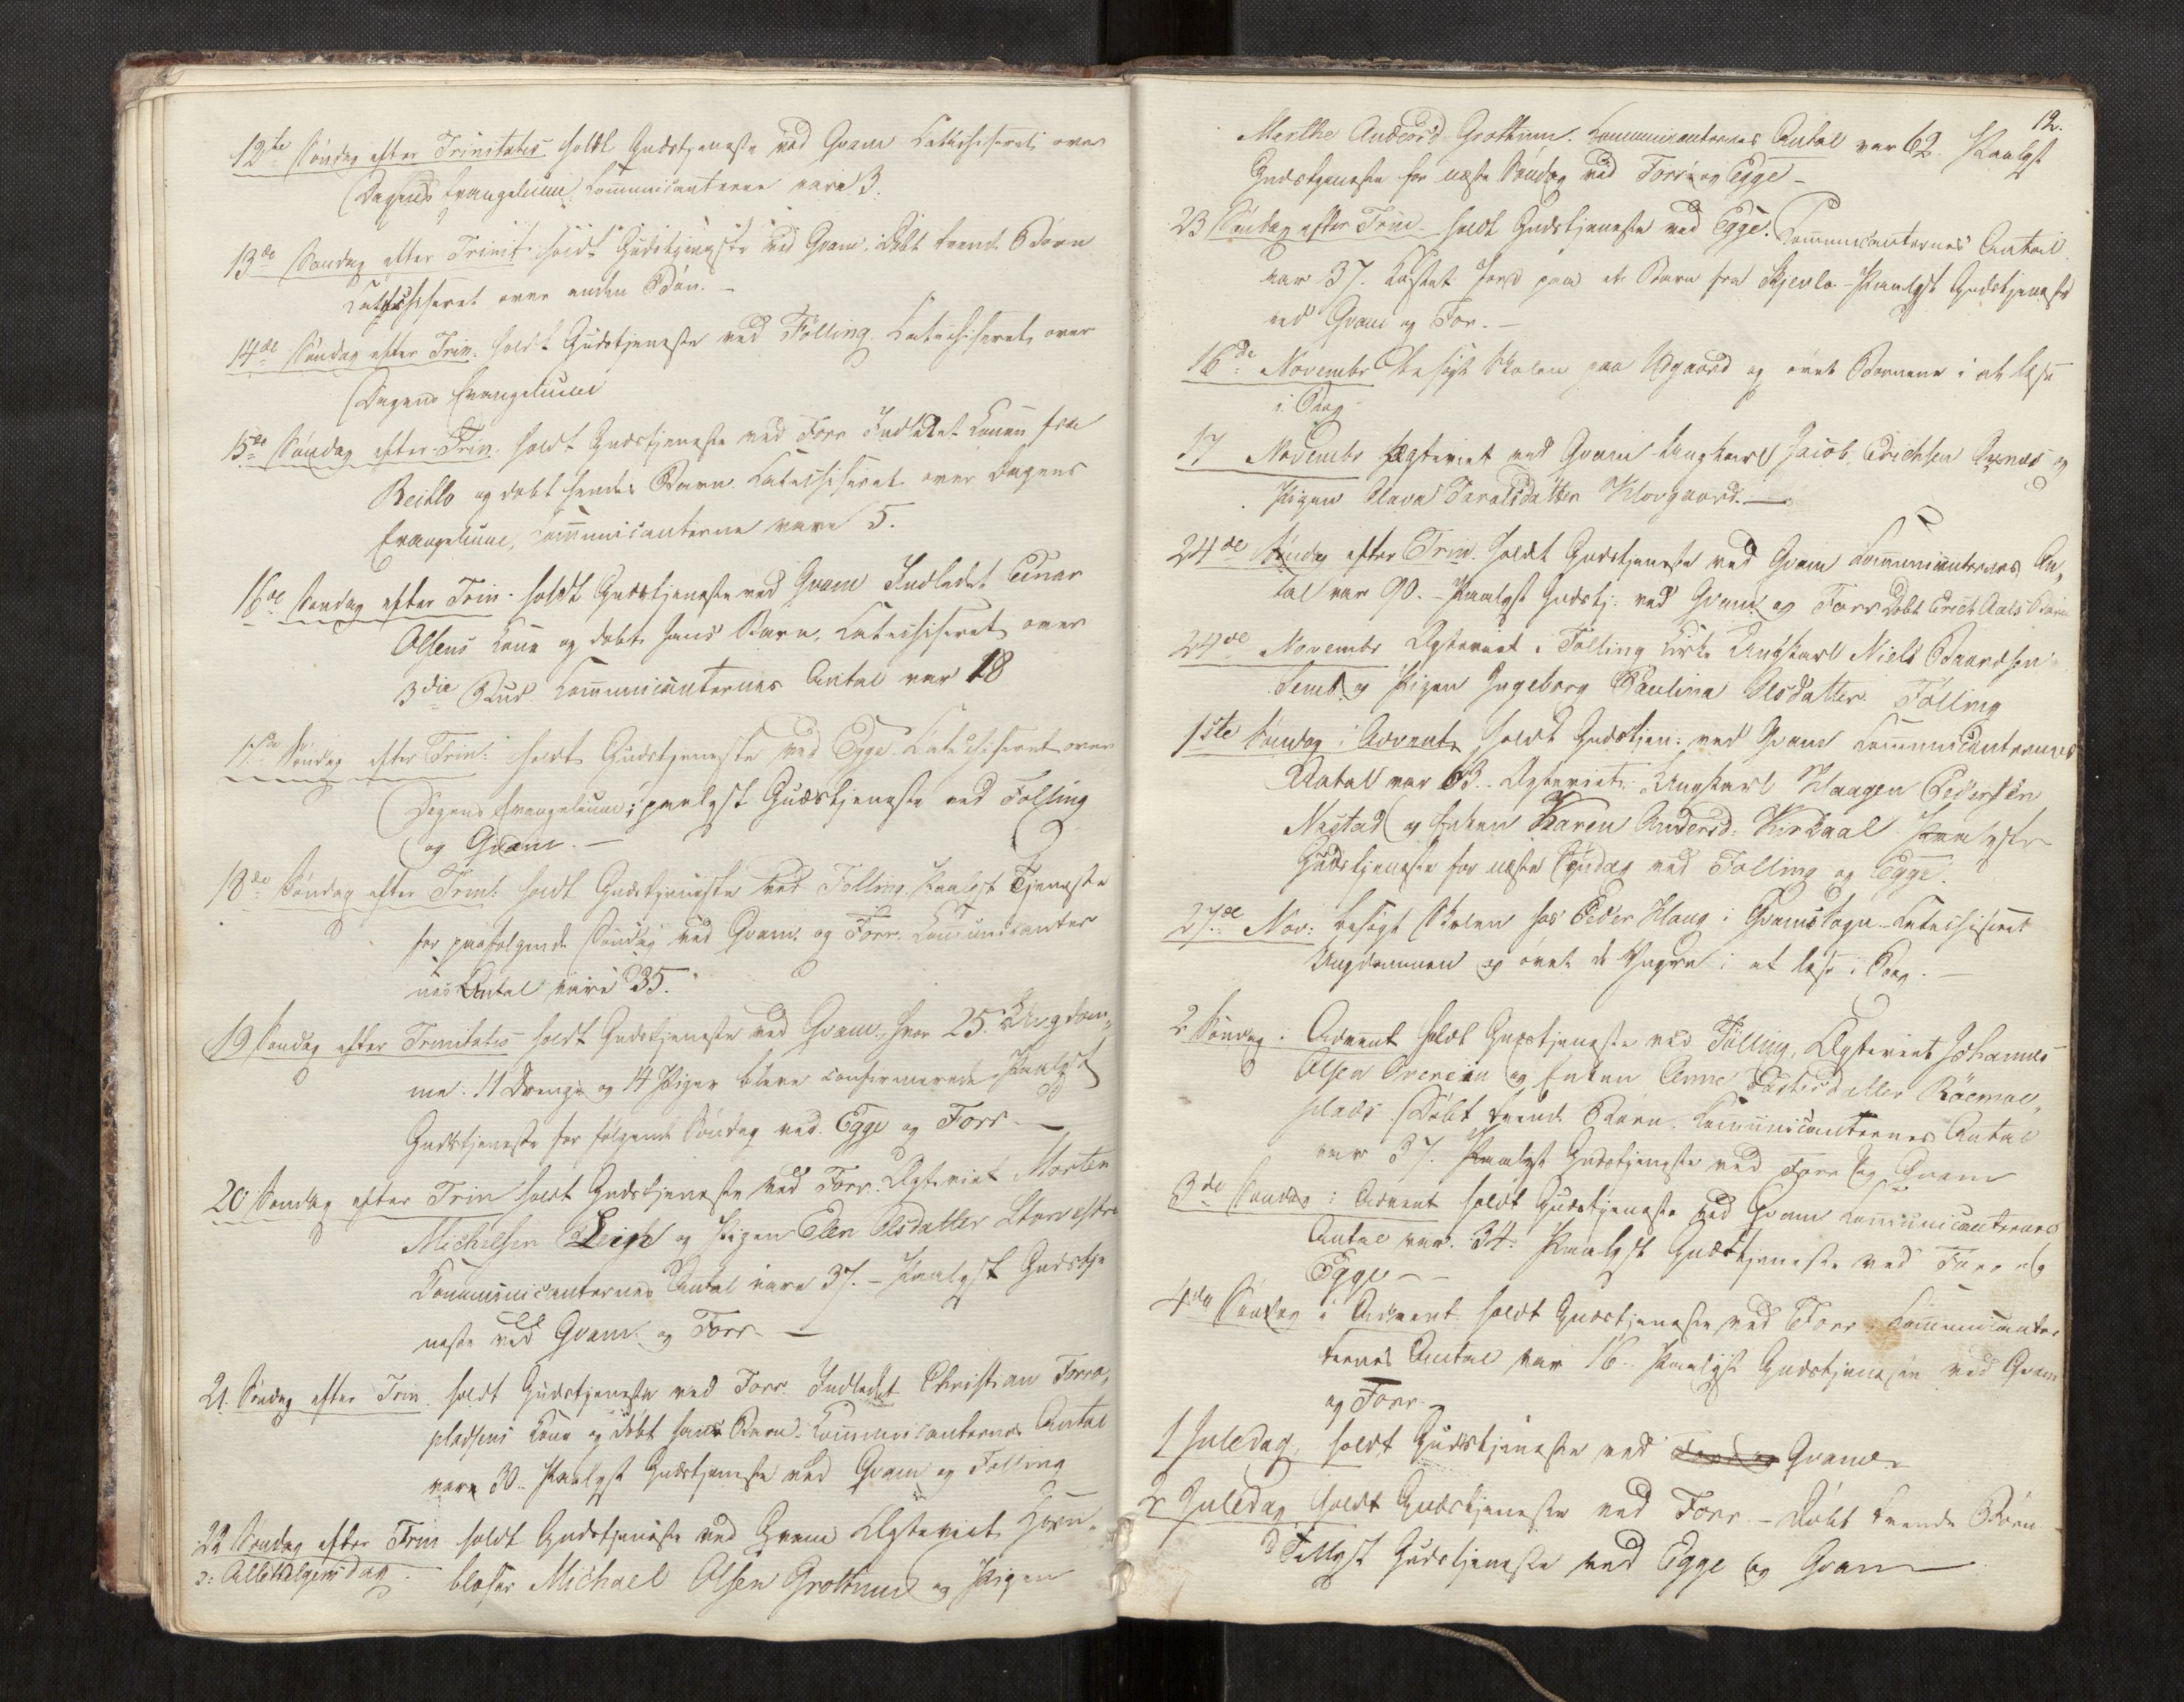 12te Søndag efter Trinitatis holdt Gudstjeneste ved Qvam Catechiseret over
Dagens Evangelium. Communicanterne vare 3.
13de Søndag efter Trinit. holdt Gudstjeneste ved Qvam. Døbt tvende Børn
Catechiseret over anden Bøn. –
14de Søndag efter Trin. holdt Gudstjeneste ved Følling. Catechiseret over
Dagens Evangelium
15de Søndag efter Trin. holdt Gudstjeneste ved Forr Indledet Konen fra
og døbt hendes Barn. Catechiseret over Dagens
Evangelium, Communicanterne vare 5.
16de Søndag efter Trin. holdt Gudstjeneste ved Qvam Indledet Einar
Olsens Kone og døbt hans Barn, Catechiseret over
3die Bud. Communicanternes Antal var 18
Søndag efter Trin: holdt Gudstjeneste ved Egge. Catechiseret over
Dagens Evangelium; paalyst Gudstjeneste ved Følling
og Qvam. –
18de Søndag efter Trin: holdt Gudstjeneste ved Følling. Paalyst Tjeneste
for paafølgende Søndag ved Qvam og Forr. Communicanter
nes Antal vare 35.
19 Søndag efter Trinitatis holdt Gudstjeneste ved Qvam, hvor 25 Ungdom,
me. 11 Drenge og 14 Piger bleve confirmerede. Paalyst
Gudstjeneste for følgende Søndag ved Egge og Forr. –
20 Søndag efter Trin holdt Gudstjeneste ved Forr. Ægteviet Morten
Michelsen og Pigen Elen Olsdatter
Communicanternes Antal vare 37. – Paalyst Gudstje
neste ved Qvam og Forr –
21. Søndag efter Trin. holdt Gudstjeneste ved Forr. Indledet Christian Forra,
pladsens Kone og døbt hans Barn. Communicanternes Antal
vare 30. Paalyst Gudstjeneste ved Qvam og Følling
22 Søndag efter Trin holdt Gudstjeneste ved Qvam Ægteviet Horn,
ɔ: Allehelgensdag. – blæser Michael Olsen Grottum og Pigen
12.
Merthe Andersd Grottum. Communicanternes Antal var 62. Paalyst
Gudstjeneste for næste Søndag ved Forr og Egge –
23 Søndag efter Trin. holdt Gudstjeneste ved Egge. Communicanternes Antal
var 37. Kastet Jord paa et Barn fra Skjevlo – Paalyst Gudstjeneste
ved Qvam og For. –
16de Novembr Besøgt Skolen paa og øvet Børnene i at læse
i Bog
17 Novembr Ægteviet ved Qvam Ungkarl Jacob Erichsen og
Pigen
24de Søndag efter Trin. holdt Gudstjeneste ved Qvam Communicanternes An,
tal var 90. – Paalyst Gudstj: ved Qvam og Forr Døbt Erich Barn
24de Novembr Ægteviet i Følling Kirke Ungkarl Niels
og Pigen Ingeborg Paulina Olsdatter Følling
1ste Søndag i Advent holdt Gudstjen: ved Qvam Communicanternes
Antal var 63. Ægteviet: Ungkarl Haagen Pedersen
og Enken Karen Andersd: Paalyst
Gudstjeneste for næste Søndag ved Følling og Egge.
27de Nov: besøgt Skolen hos Peder Haug i Qvams Sogn. Catechiseret
Ungdommen og øvet de Yngre i at læse i Bog. –
2 Søndag i Advent holdt Gudstjeneste ved Følling, Ægteviet Johannes
Olsen og Enken Anne
plads. Døbt tvende Børn. Communicanternes Antal
var 37. Paalyst Gudstjeneste ved Forr og Qvam
3de Søndag i Advent holdt Gudstjeneste ved Qvam Communicanternes
Antal var. 34. Paalyst Gudstjeneste ved Forr og
Egge – –
4de Søndag i Advent holdt Gudstjeneste ved Forr. Communicanter
ternes Antal var 16. Paalyst Gudstjeneste ved Qvam
og Forr –
1 Juledag, holdt Gudstjeneste ved Qvam –
2 Juledag holdt Gudstjeneste ved Forr. – Døbt tvende Børn –
Gudstjeneste ved Egge og Qvam –